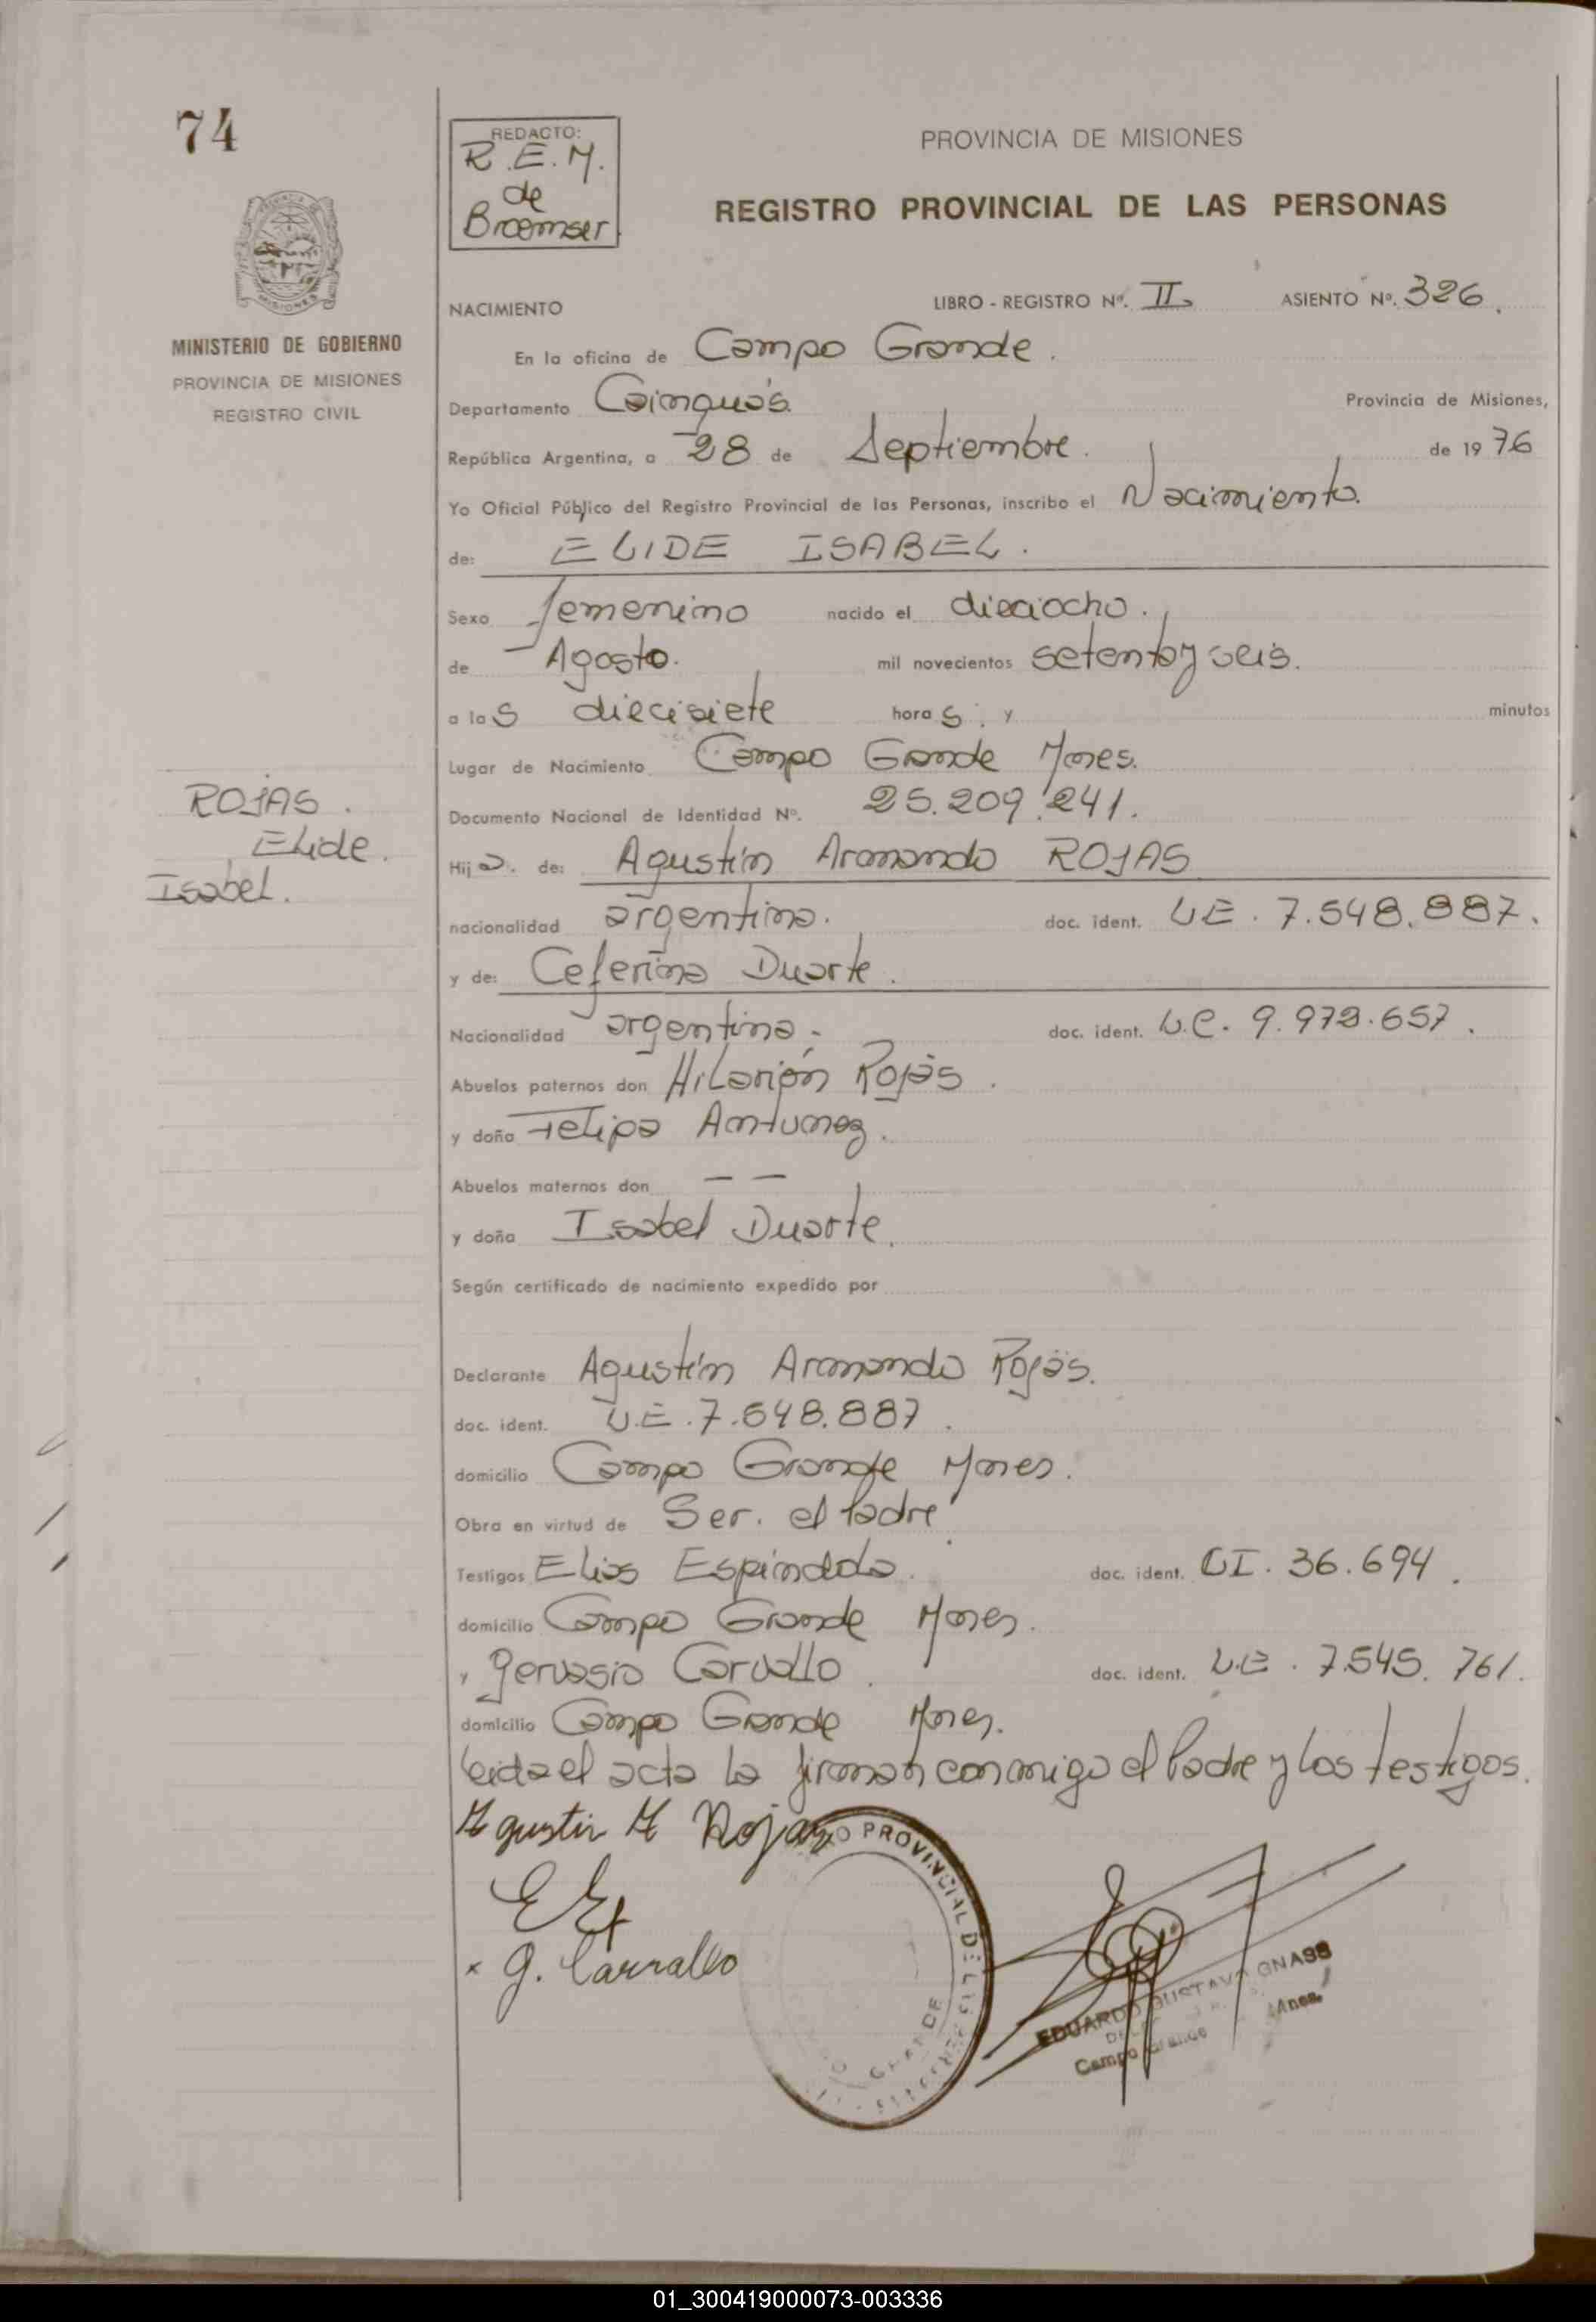 74
REDACTO:
R.E.M.
de
Broemser
PROVINCIA DE MISIONES
REGISTRO PROVINCIAL DE LAS PERSONAS
MINISTERIO DE GOBIERNO
PROVINCIA DE MISIONES
REGISTRO CIVIL
NACIMIENTO
LIBRO - REGISTRO Nº. II ASIENTO Nº. 326.
En la oficina de Campo Grande.
Departamento Cainguás. Provincia de Misiones,
República Argentina, a 28 de Septiembre. de 19 76
Yo Oficial Público del Registro Provincial de las Personas, inscribo el Nacimiento.
de: ELIDE ISABEL.
Sexo femenino nacido el dieciocho.
de Agosto. mil novecientos setenta y seis.
a las diecisiete horas y minutos
Lugar de Nacimiento Campo Grande Mnes.
Documento Nacional de Identidad Nº. 25.209.241.
ROJAS.
Elide.
Isabel.
Hija. de: Agustín Armando ROJAS
nacionalidad argentina. doc. ident. L.E. 7.548.887.
y de: Ceferina Duarte.
Nacionalidad argentina. doc. ident. L.C. 9.979.657.
Abuelos paternos don Hilarión Rojas.
y doña Felipa Antunez.
Abuelos maternos don — —
y doña Isabel Duarte.
Según certificado de nacimiento expedido por
Declarante Agustín Armando Rojas.
doc. ident. L.E. 7.548.887.
domicilio Campo Grande Mnes.
Obra en virtud de Ser. el Padre
Testigos Elias Espindola. doc. ident. CI. 36.694.
domicilio Campo Grande Mnes.
y Gervasio Carvallo. doc. ident. L.E. 7.545.761.
domicilio Campo Grande Mnes.
Leida el acta la firman conmigo el Padre y los testigos.
Agustin A Rojas
x G. Carvallo
PROVINCIAL DE LAS PERSONAS
GRANDE
EDUARDO GUSTAVO GNASS
Campo Grande Mnes.
01_300419000073-003336